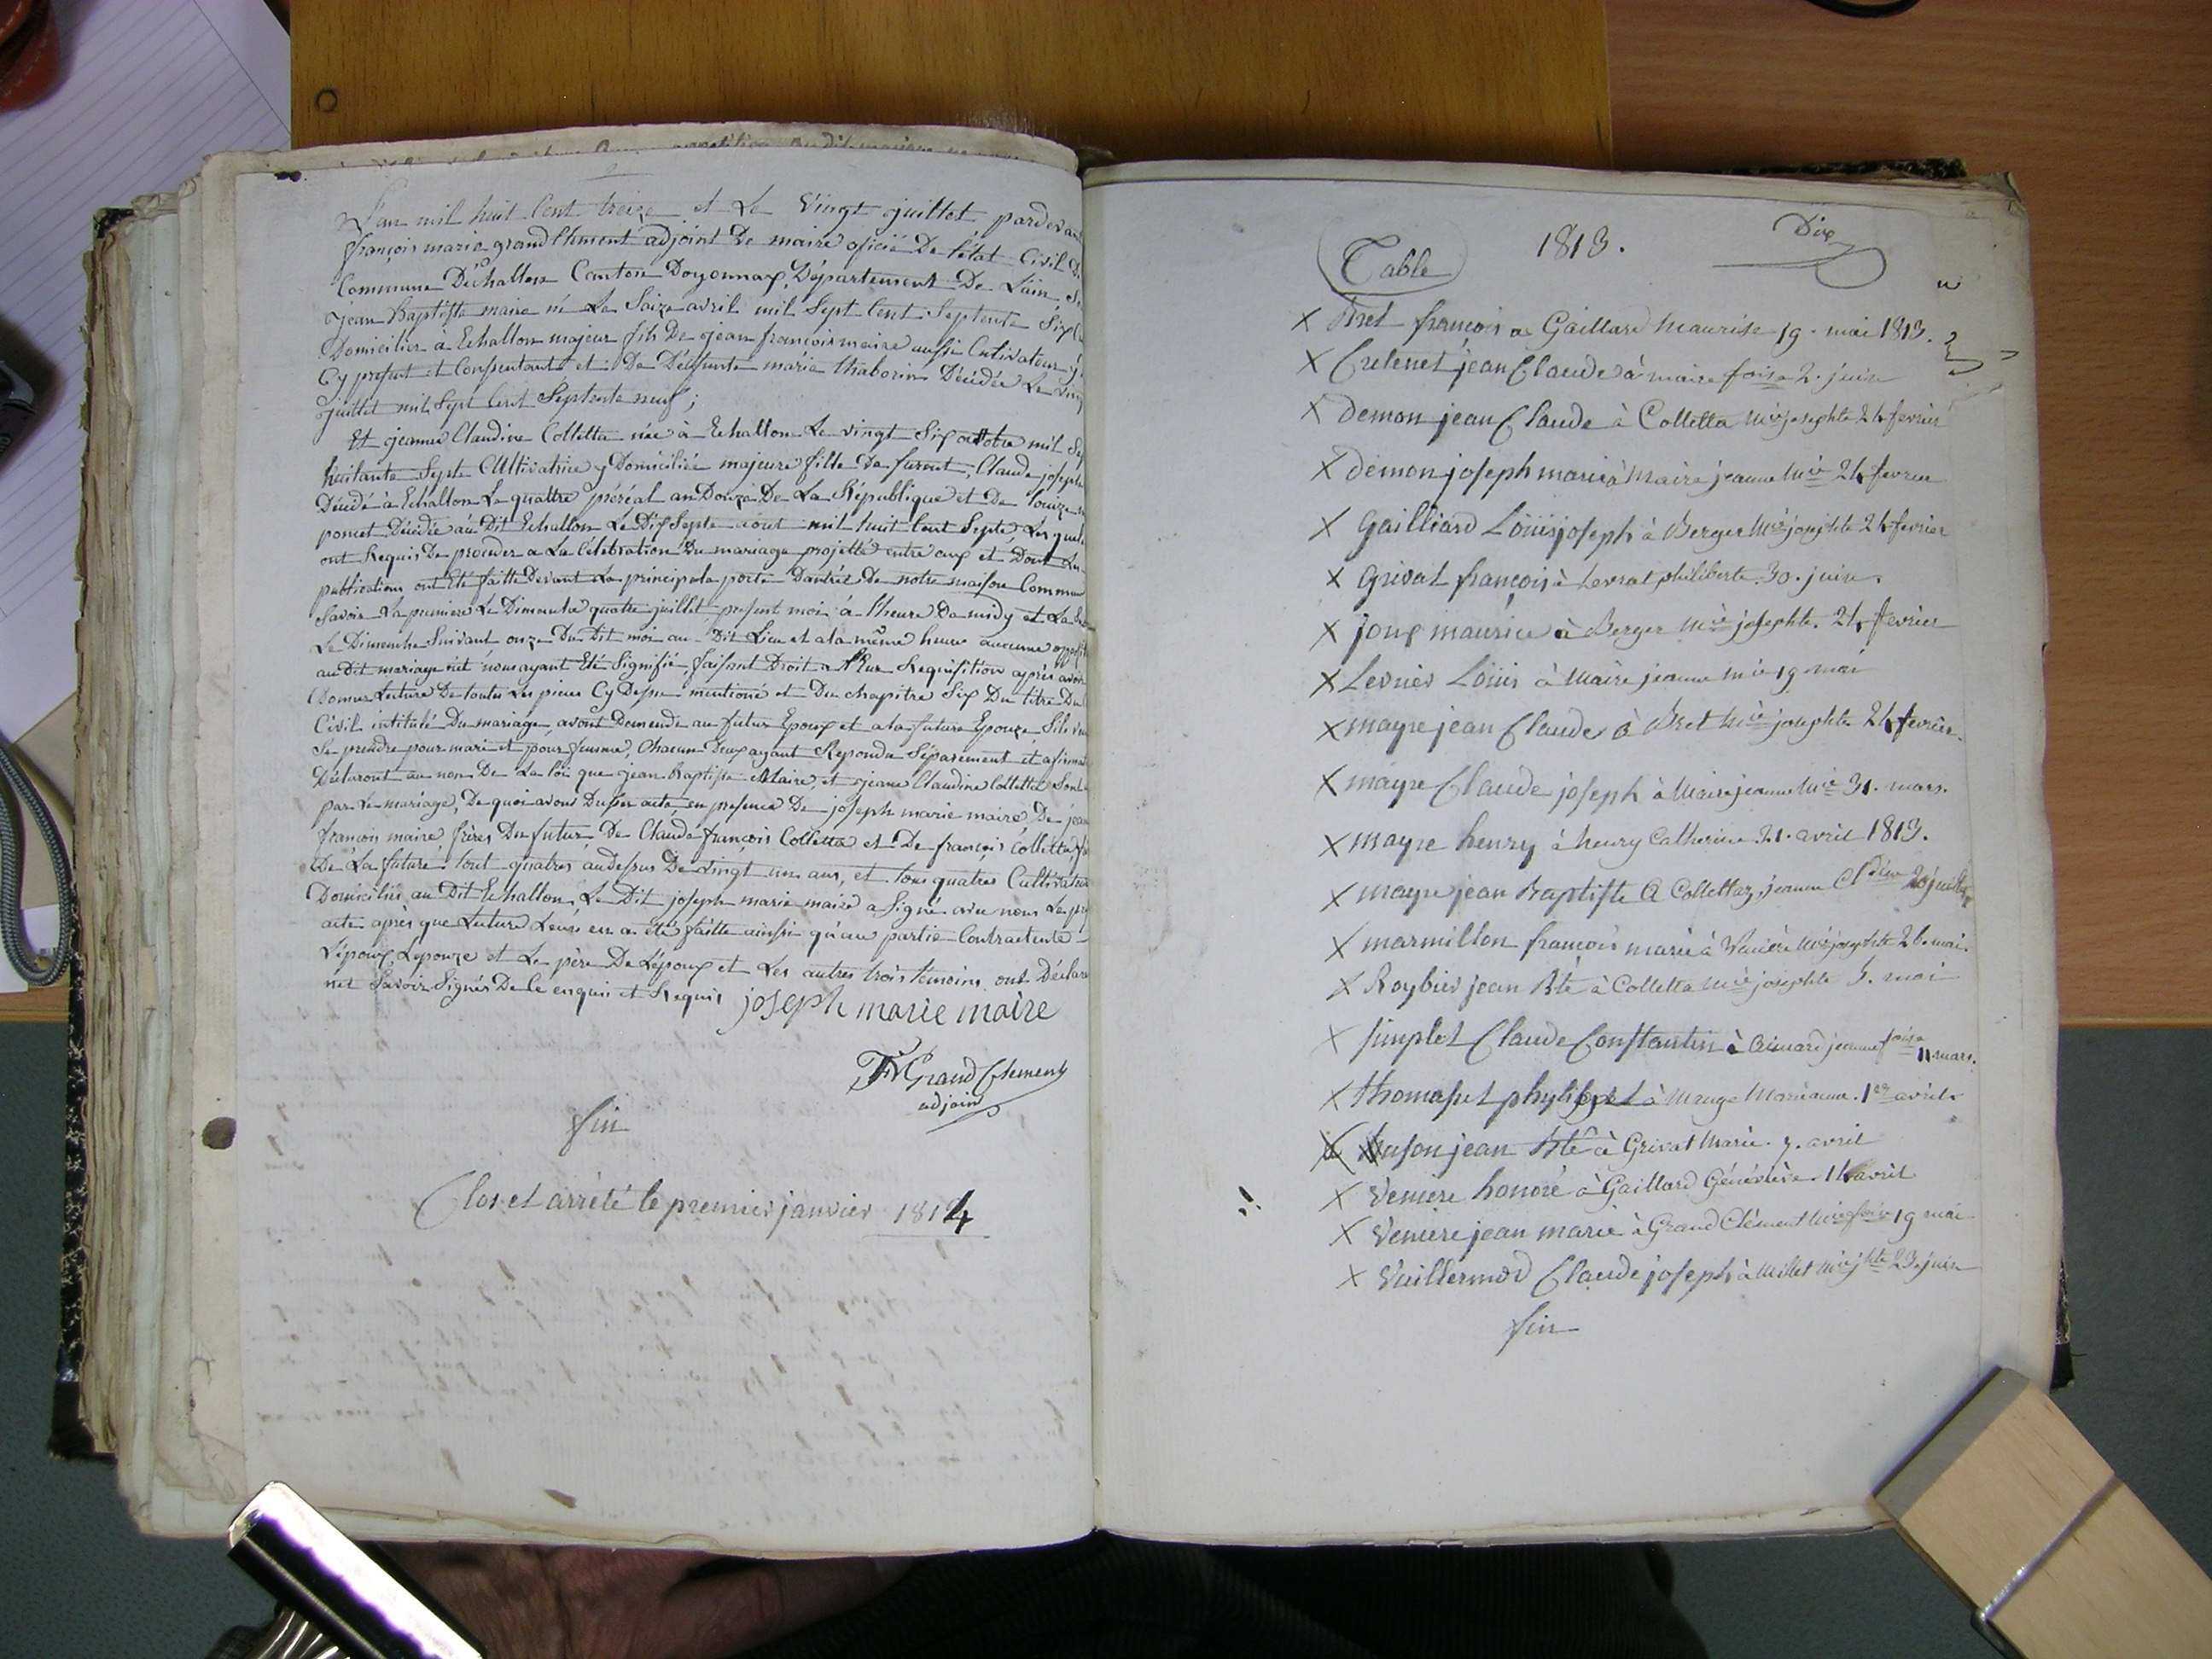 L'an mil huit Cent treize et Le Vingt juillet pardevant
françois marie grandClment adjoint De maire oficié De l'état Civil De
Commune Déchallon Canton Doyonnax, Département De L'ain
jean Baptiste maire né Le Saize avril mil Sept Cent Septente Six
Domicilier a Echallon majeur fils De jean françois maire aussi Cultivateur y
Cy present et Consentant et De Deffunte marie thaborin Décédée Le vingt
juillet mil Sept Cent Septente neuf;
Et jeanne Claudine Colletta née à Echallon Le vingt Six octobre mil Sept
huitante Septe Cultivatrice y Domiciliée majeure fille De furent, Claude joseph
Décédé à Echallon Le quattre péréal an Douze De La République et De Louize
poncet Décédée au Dit Echallon Le Dix Septe aout mil huit Cent Septe, Lesquels
ont Requis De proceder a La Célébration Du mariage projetté entre eux et Dont Les
publications ont Eté faitte Devant La principale porte Dantrée De notre maison Commune
Savoir La premiere Le Dimanche quatre juillet present moi à l'heure De midy et La
Le Dimanche Suivant onze Du Dit moi au Dit Lieu et a la même heure aucune
au Dit mariage net nous ayant Eté Signifié, faisant Droit a Leur Requisition après avoir
Donner Lecture De toutes Les pieces Cy Dessu mentioné et Du chapitre Six Du titre Du
Civil intitulé Du mariage, avont Demendé au futur Epoux et a la future Epouze, Sils
Se prendre pour mari et pour femme, Chacun Deux ayant Reponda Séparement et afirma
Déclaront au non De La loi que jean Baptiste Maire, et jeanne Claudine Colletta Sont
par Le mariage, De quoi avons Dresser acte en presence De joseph marie maire, De jean
françois maire, frères Du futur, De Claude françois Colletta et De françois Colletta,
De La future tout quatres au dessus De vingt un ans, et tous quatres Cultivateur
Domiciliés au Dit Echallon, Le Dit joseph marie maire a Signé avec nous Le
acte apres que Lecture Leurs en a été faitte ainsi qu'au partie Contractente
L'époux Lepouze et Le père De L'époux et Les autres trois témoins ont Déclaré
net Savoir Signés De Ce enquis et Requis joseph marie maire
Grand Clement
adjoint
fin
Clos et arrêté le premier janvier 1814
Table 1813. Dix
X Bret françois a Gaillard Maurise 19. mai 1813.
X Cretenet jean Claude à maire foise 2. juin
X Demon jean Claude à Colletta Mie josephte 24 fevrier
X Demon joseph marie à Maire jeanne Mie 24 fevrier
X Gailliard Louis joseph à Berger Mie josephte 24 fevrier
X Grivat françois à Levrat philiberte. 30. juin.
X joux maurice à Berger Mie josephte. 24 fevrier
X Levrier Louis à Maire jeanne Mie 19 mai
X mayre jean Claude à Bret Mie josephte 24 fevrier.
X mayre Claude joseph à Maire jeanne Mie 31. mars.
X mayre henry à henry Catherine 21. avril 1813.
X mayre jean Baptiste a Collettaz, jeanne Cldine 20 juillet
X marmillon françois marie à Veniere Mie josephte 26. mai.
X Roybier jean Bte à Colletta Mie josephte 5. mai
X simplet Claude Constantin à Aimard jeanne foise 11 mars.
X thomasset phylibert à Mauge Marianne. 1er avril
X tuson jean Bte à Grivat Marie. 7. avril
X Veniere honoré à Gaillard Généviève. 14 avril
X Veniere jean marie à Grand Clément Mie foise 19 mai
X Vuillermod Claude joseph à Millet Mie jhte 23. juin
fin